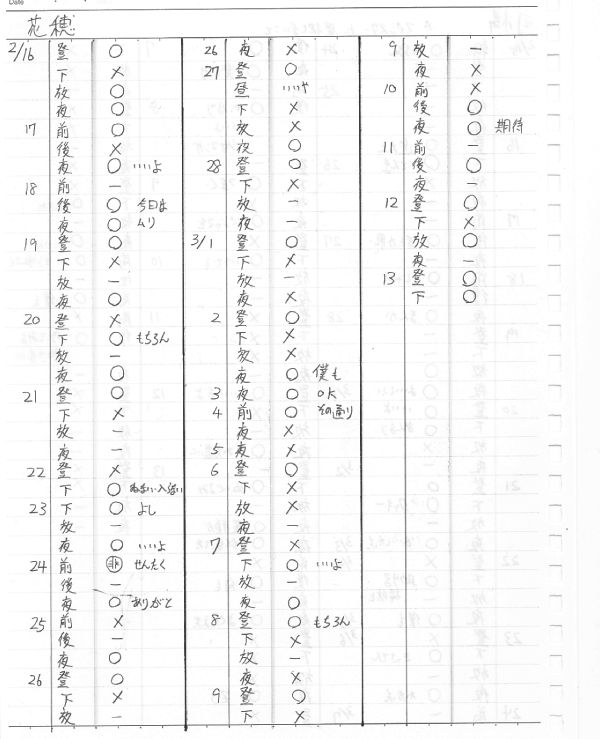 Date
花穂
2/16 登 ○
下 ×
放 ○
夜 ○
17 前 ○
後 ×
夜 ○ いいよ
18 前 －
後 ○ 今日は
夜 ○ ムリ
19 登 ○
下 ×
放 －
夜 ○
20 登 ×
下 ○ もちろん
放 －
夜 ○
21 登 ○
下 ×
放 －
夜 －
22 登 ×
下 ○
23 下 ○ よし
放 －
夜 ○ いいよ
24 前 せんたく
後 －
夜 ○ ありがと
25 前 ×
後 －
夜 ○
26 登 ○
下 ×
放 －
26 夜 ×
27 登 ○
昼 いいや
下 ×
放 ×
夜 ○
28 登 ○
下 ×
放 －
夜 －
3/1 登 ○
下 ×
放 －
夜 ×
2 登 ○
下 ×
放 ×
夜 ○ 僕も
3 夜 ○ OK
4 前 ○ その通り
夜 ×
5 夜 ×
6 登 ○
下 ×
放 ×
夜 －
7 登 ×
下 ○ いいよ
放 －
夜 ○
8 登 ○ もちろん
下 ×
放 －
夜 ×
9 登 ○
下 ×
9 放 －
夜 ×
10 前 ×
後 ○
夜 ○ 期待
11 前 －
後 ○
夜 －
12 登 ○
下 ×
放 ○
夜 －
13 登 ○
下 ○